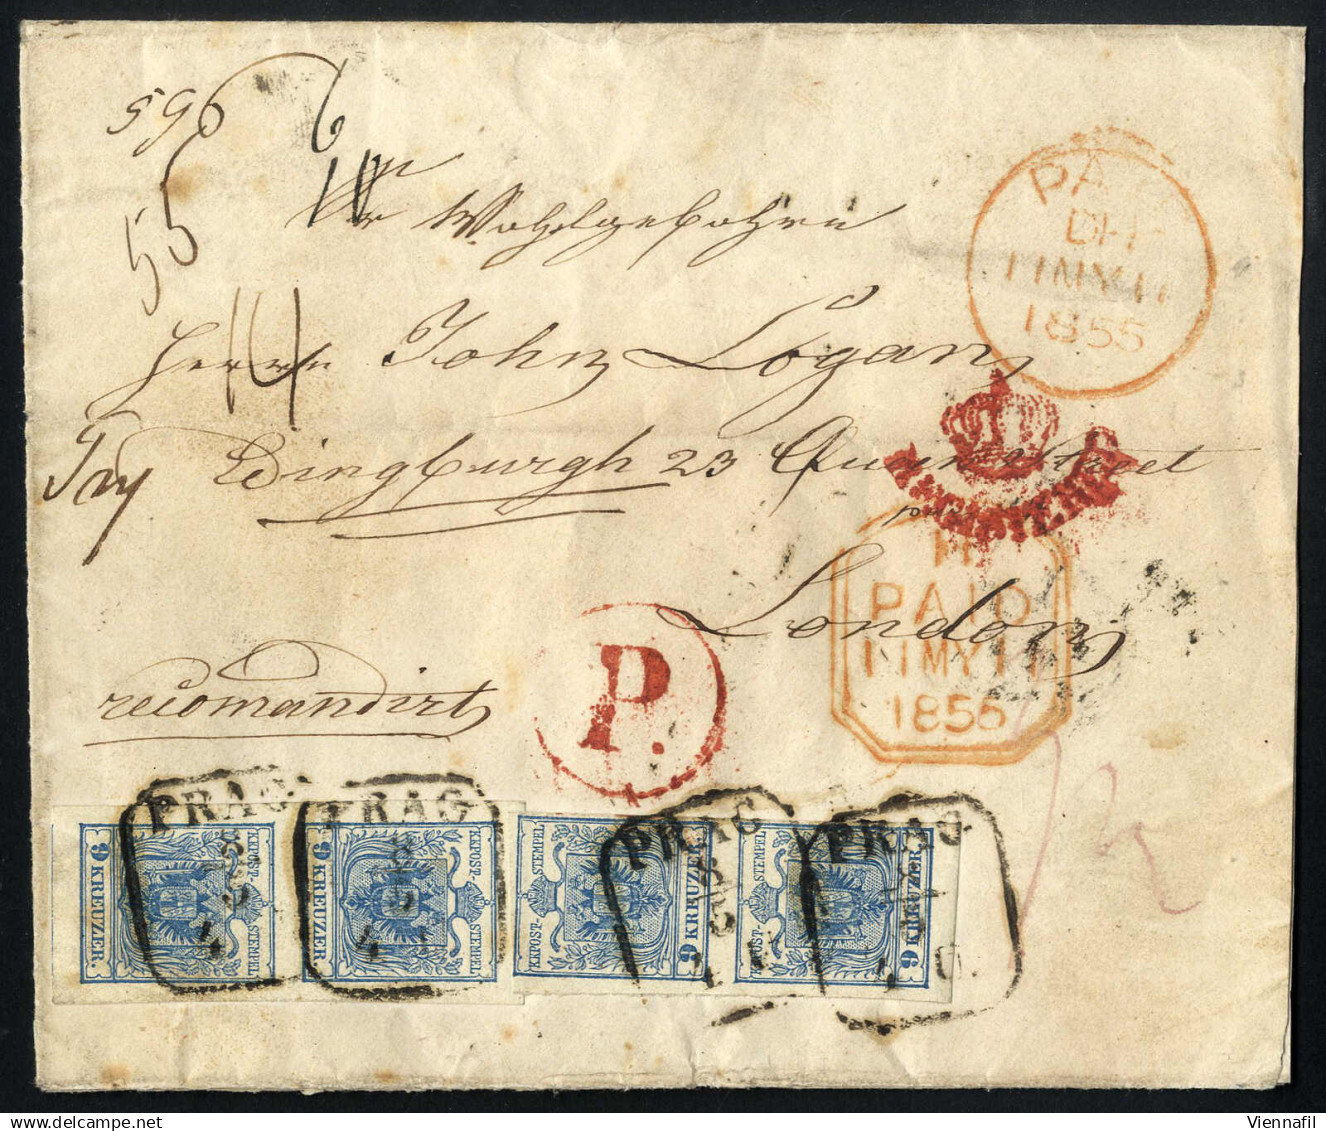 596 6
55
Wohlgebohren
14
Herrn John Logan
Edingburgh 23 Queen Street
London
recomandirt
PA
DH
11MY11
1855
REGISTERED
PAID
11MY11
1855
P.
PRAG
PRAG
PRAG
PRAG
9 KREUZER.
KKPOST-
STEMPEL
9 KREUZER.
KKPOST-
STEMPEL
KKPOST-
STEMPEL
9 KREUZER
KKPOST-
STEMPEL
9 KREUZER
Viennafil